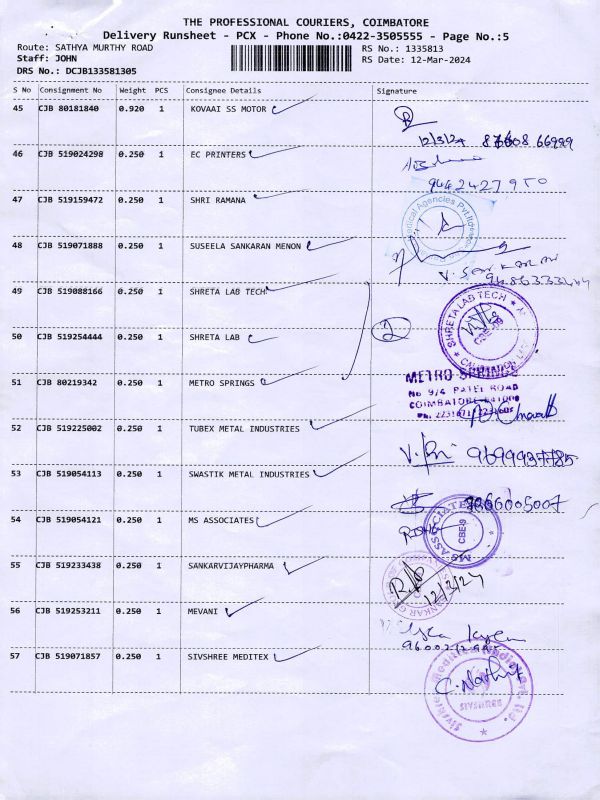 THE PROFESSIONAL COURIERS, COIMBATORE
Delivery Runsheet - PCX - Phone No.:0422-3505555 - Page No.:5
Route: SATHYA MURTHY ROAD RS No.: 1335813
Staff: JOHN RS Date: 12-Mar-2024
DRS No.: DCJB133581305
S No Consignment No Weight PCS Consignee Details Signature
45 CJB 80181840 0.920 1 KOVAAI SS MOTOR
12/3/24
46 CJB 519024298 0.250 1 EC PRINTERS
9442427950
47 CJB 519159472 0.250 1 SHRI RAMANA
Medical Agencies Pvt.Ltd
48 CJB 519071888 0.250 1 SUSEELA SANKARAN MENON
V. SANKARAN
49 CJB 519088166 0.250 1 SHRETA LAB TECH
50 CJB 519254444 0.250 1 SHRETA LAB
2
SHRETA LAB TECH
51 CJB 80219342 0.250 1 METRO SPRINGS
METRO SPRINGS
No 9/4 PATEL ROAD
COIMBATORE
52 CJB 519225002 0.250 1 TUBEX METAL INDUSTRIES
53 CJB 519054113 0.250 1 SWASTIK METAL INDUSTRIES
54 CJB 519054121 0.250 1 MS ASSOCIATES
MS ASSOCIATES
CBE-9
55 CJB 519233438 0.250 1 SANKARVIJAYPHARMA
12/3/24
56 CJB 519253211 0.250 1 MEVANI
57 CJB 519071857 0.250 1 SIVSHREE MEDITEX
C. Nathiya